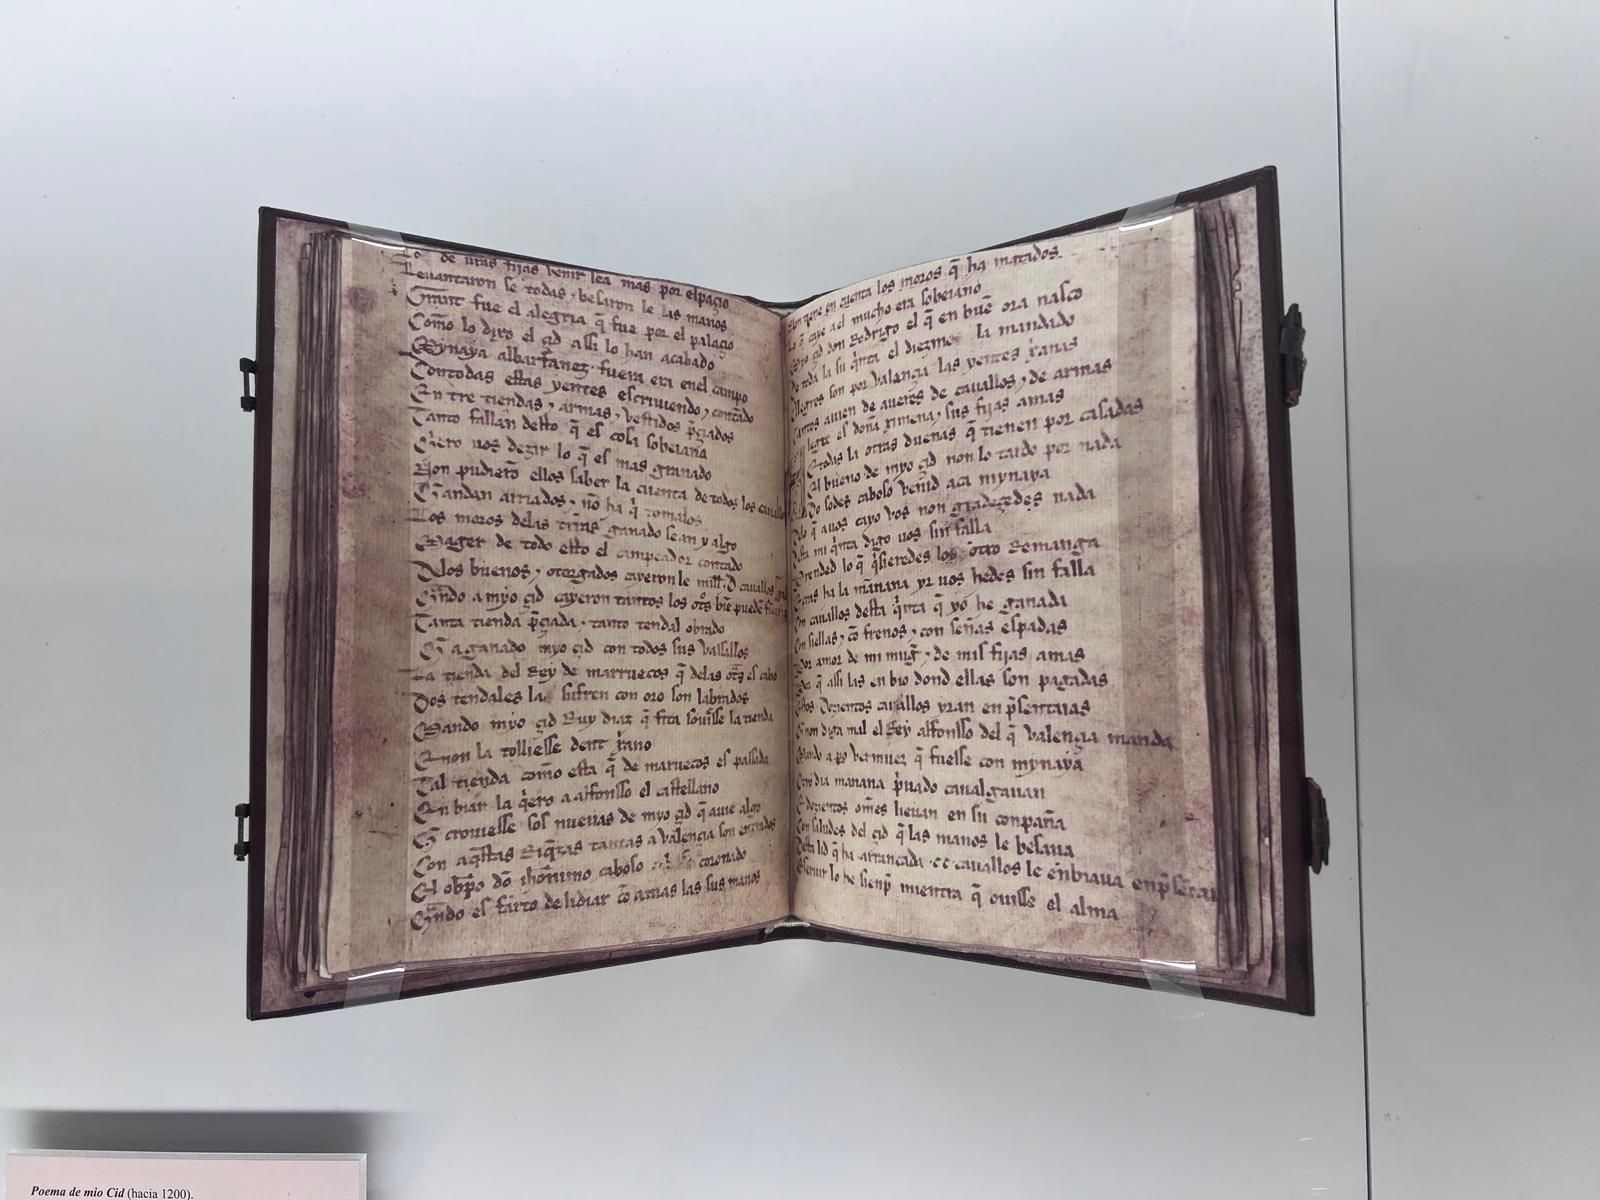 de vras fijas venir sea mas por espaçio
Leuantaron se todas, besaron le las manos
Grant fue el alegria q̃ fue por el palaçio
Commo lo dixo el çid assi lo han acabado
Mynaya albarfanez fuera era enel campo
Contodas estas yentes escriuiendo, contãdo
En tre tiendas, armas, vestidos p̃çiados
Tanto fallan desto q̃ es cosa sobeiana
Q̃ero uos dezir lo q̃ es mas granado
Non pudierõ ellos saber la cuenta de todos los cauallos
andan arriados, nõ ha q̃ tomalos
Los moros delas trr̃as ganado sean y algo
Mager de todo esto el campeador contado
Delos buenos, otorgados cayeron le mill D cauallos
Q̃ndo a myo çid cayeron tantos los ot̃s biẽ puedẽ
Tanta tienda p̃çiada, tanto tendal obrado
Q̃ a ganado myo çid con todos sus vassallos
La tienda del Rey de marruecos q̃ delas ot̃s es cabo
Dos tendales la sufren con oro son labrados
Mando myo çid Ruy diaz q̃ fita souisse la tienda
E non la tolliesse dent xr̃ano
Tal tienda commo esta q̃ de maruecos es passada
En biar la q̃ero a alfonsso el castellano
Q̃ crouiesse sos nueuas de myo çid q̃ auie algo
Con aq̃stas Riq̃zas tantas a valençia son entrados
El obpõ dõ ihr̃onimo caboso coronado
Q̃ndo es farto de lidiar cõ amas las sus manos
Non tiene en cuenta los moros q̃ ha matados
Lo q̃ caye a el mucho era sobeiano
Myo çid don Rodrigo el q̃ en buẽ ora nasco
De toda la su q̃nta el diezmo la mandado
Alegres son por valençia las yentes xr̃anas
Tantos auien de aueres de cauallos, de armas
Alegre es doña ximena, sus fijas amas
E todas la otras duenas q̃ tienen por casadas
El bueno de myo çid non lo tardo por nada
Do sodes caboso venid aca mynaya
Delo q̃ auos cayo vos non gradeçedes nada
Desta mi q̃nta digo uos sin falla
Prended lo q̃ q̃sieredes lo otro Remanga
Cras ha la mañana yr uos hedes sin falla
Con cauallos desta q̃nta q̃ yo he ganada
Con siellas, cõ frenos, con señas espadas
Por amor de mi mug̃, de mis fijas amas
Por q̃ assi las en bio dond ellas son pagadas
Estos Dozientos cauallos yran en p̃sentaias
Q̃ non diga mal el Rey alfonsso del q̃ valençia manda
Mando a po vermuez q̃ fuesse con mynaya
Otro dia mañana p̃uado caualgauan
E dozientos omẽs lieuan en su conpaña
Con saludes del çid q̃ las manos le besaua
Desta lid q̃ ha arrancada .cc. cauallos le enbiaua enp̃sentaia
Seruir lo he sienp̃ mientra q̃ ouisse el alma
Poema de mio Cid (hacia 1200).